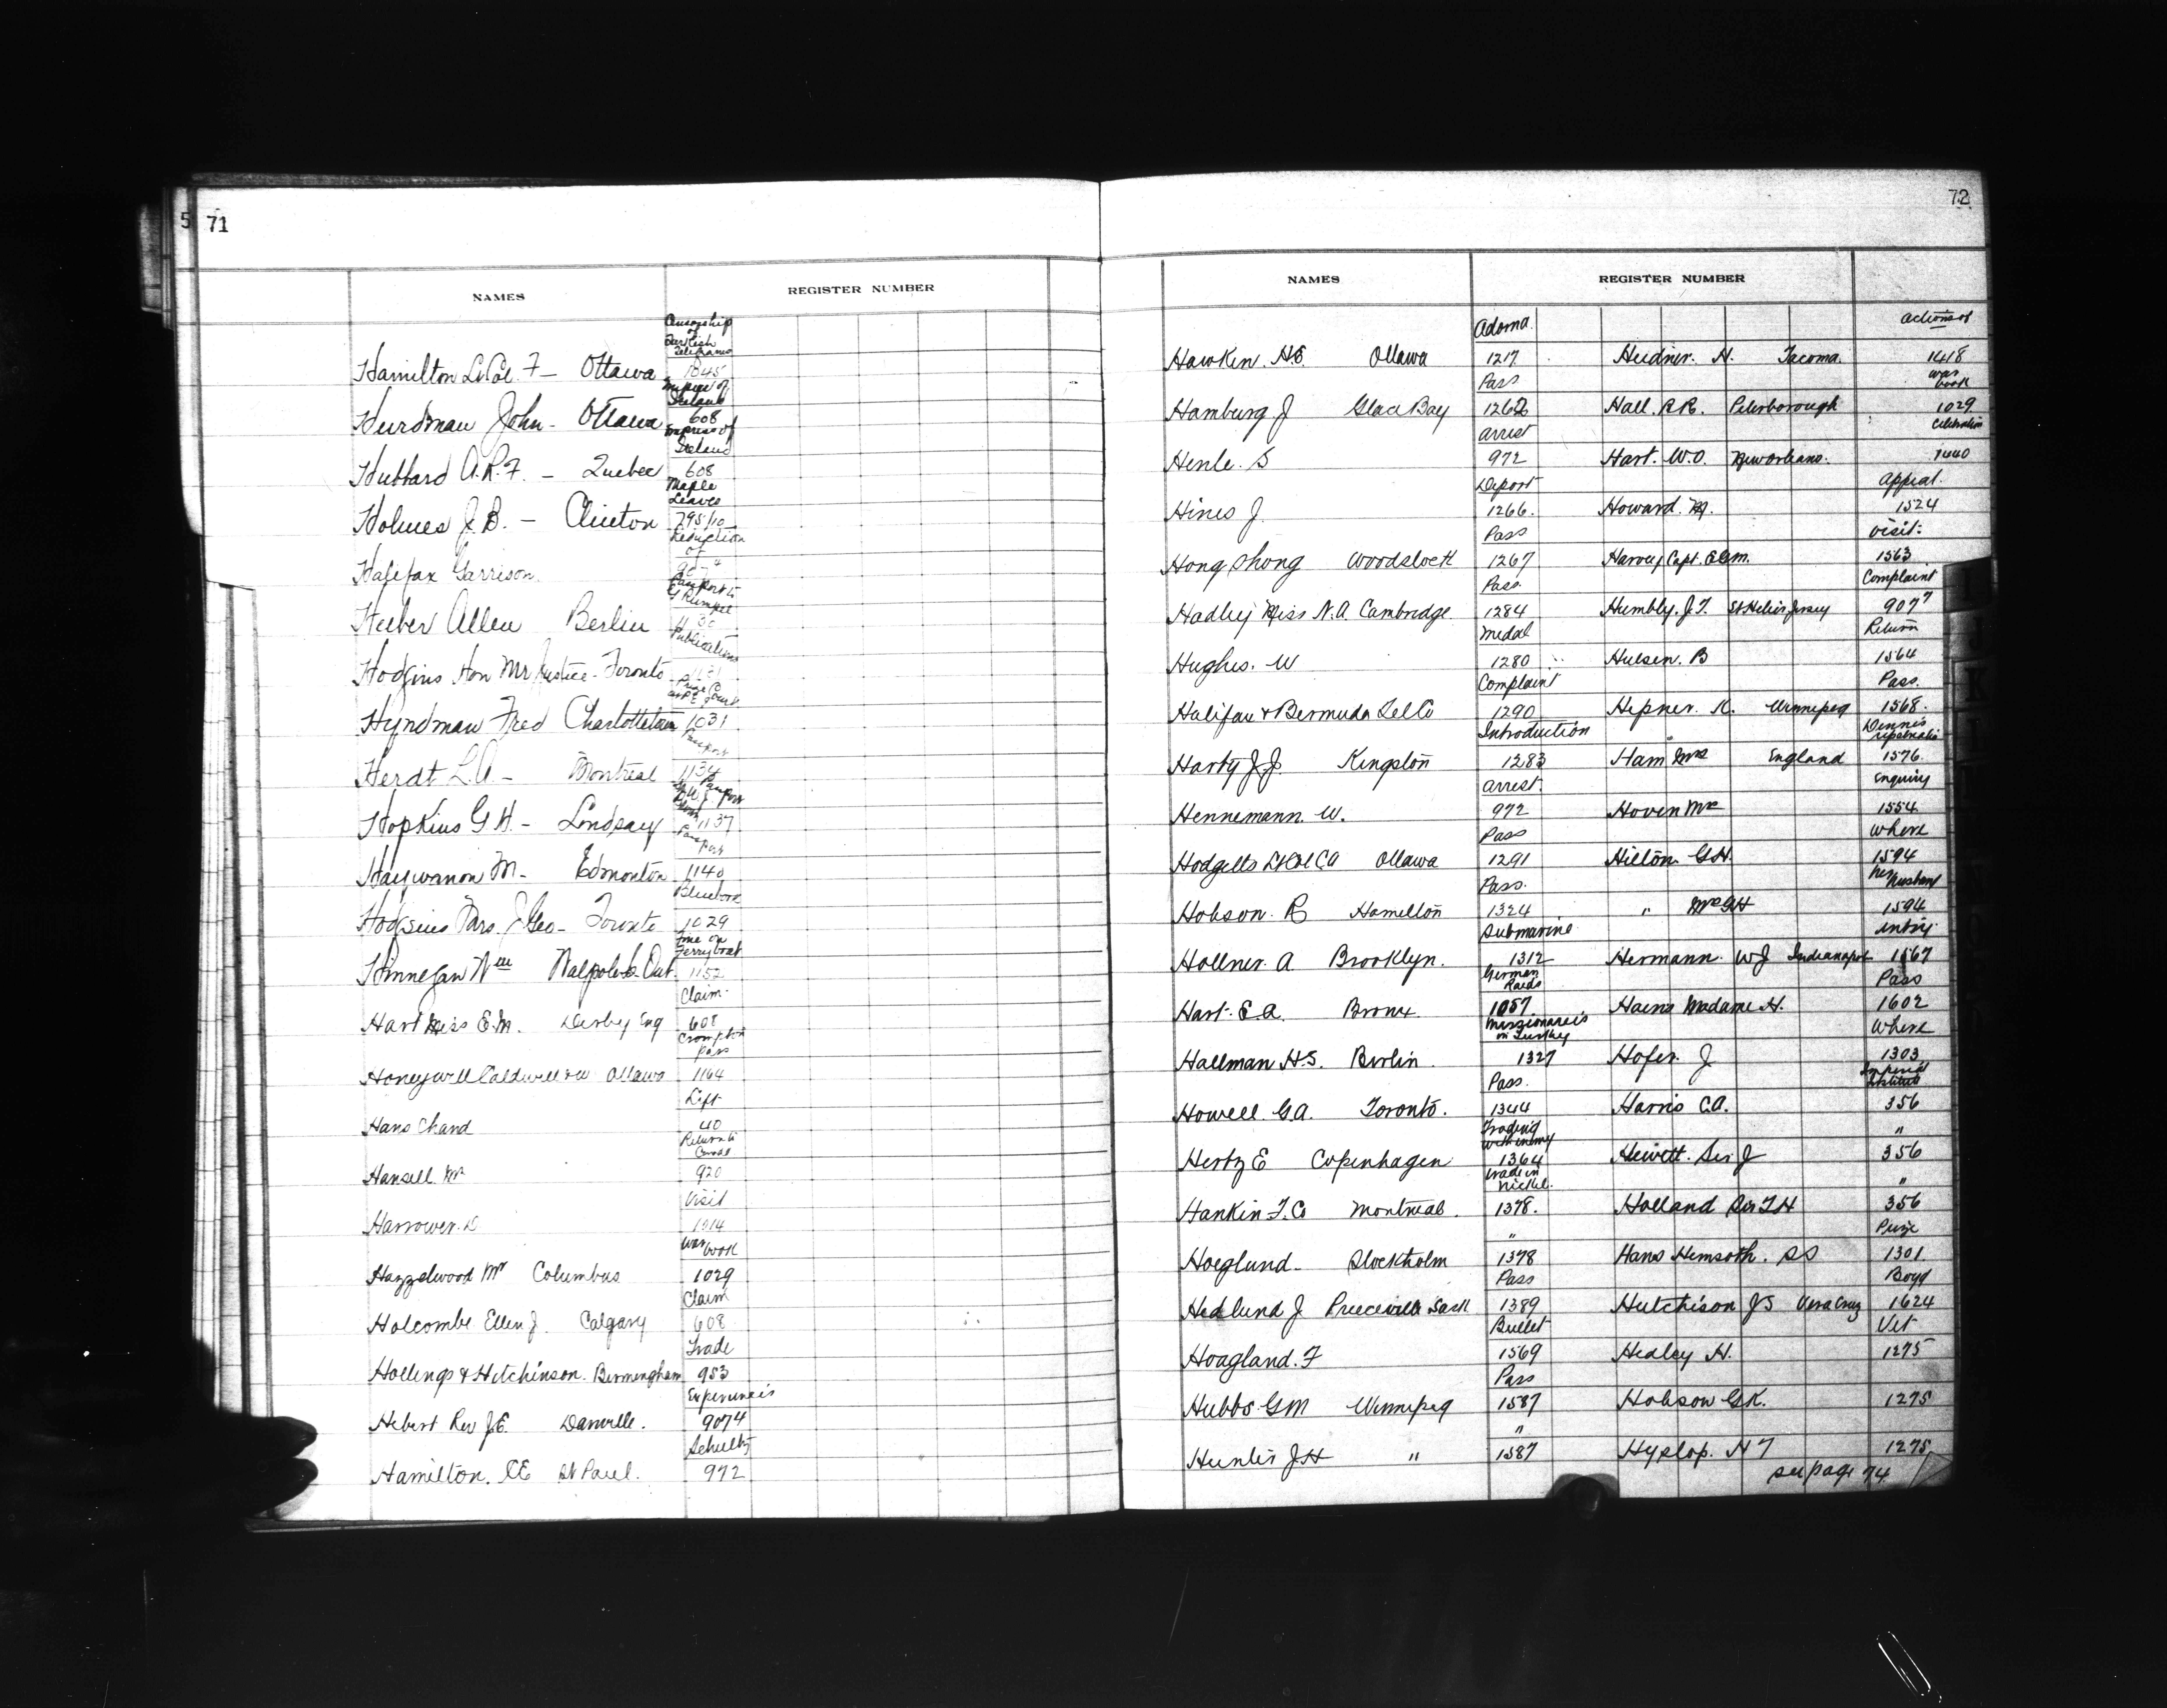 5 71
NAMES REGISTER NUMBER
Censorship of Turkish Telegrams
Hamilton Lt Col. F — Ottawa 1045
Empress of Ireland
Hurdman John - Ottawa 608
Empress of Ireland
Hubbard A.R.F. — Quebec 608
Maple Leaves
Holmes J.B. — Clinton 795/10
Reduction of
Halifax Garrison
Passport to
Huber Allen Berlin
Publications
Hodgins Hon Mr Justice - Toronto
Prize Court
Hyndman Fred Charlottetown 1031
Passport
Herdt L.A — Montreal 1134
Hopkins G H — Lindsay 1137
Passport
M - Edmonton 1140
Bluebook
Hodgins Geo - Toronto 1029
Fire on Ferryboat
Hinnegan Wm Walpole Is. Ont. 1152
Claim
Hart Miss E.M. Derby Eng 608
Crompton Pass
Honeywell Caldwell & W Ottawa 1164
Left
Hans Chand 40
Return to Canada
Hansell Mr 920
Visit
Harrower. D 1914
War book
Hazzelwood Mr Columbus 1029
Claim
Holcombe Ellen J. Calgary 608
Trade
Hollings & Hitchinson. Birmingham 953
Experiences
Hebert Rev J.E. Danville. 9074
Schultz
Hamilton. C E St Paul. 972
72
NAMES REGISTER NUMBER
Adoma. Actions of
Hawken. H.E. Ottawa 1217 Heidner. H. Tacoma. 1418
Pass War book
Hamburg J Glace Bay 1262 Hall. R.R. Peterborough 1029
Arrest Celebration
Henle. S 972 Hart. W.O. New Orleans. 1440
Deport Appeal.
Hines J. 1266. Howard. M. 1524
Pass Visit:
Hong Shong Woodstock 1267 Harvey Capt. E.G.M. 1563
Pass Complaint
Hadley Miss N.A. Cambridge. 1284 Humbly. J.T. St Helier Jersey 9077
Medal Return
Hughes. W 1280 Hulsen. B 1564
Complaint Pass.
Halifax & Bermuda Tel Co 1290 Hepner. K. Winnipeg 1568.
Introduction Dennis repatriation
Harty J.J. Kingston 1283 Ham Mrs England 1576
Arrest. Enquiry
Hennemann. W. 972 Hoven Mr 1554
Pass Where
Hodgetts Lt Col CA Ottawa 1291 Hilton G.H. 1594
Pass. her husband
Hobson. R Hamilton 1324 " Mrs GH 1594
Submarine entry
Hollner. A Brooklyn. 1312 Hermann. W J Indianapolis 1567
German Raids Pass
Hart. E.A. Bronx 1057. Madame H. 1602
Missionaries in Turkey Where
Hallman H.S. Berlin 1327 Hofer. J 1303
Pass. Imperial Institute
Howell. G.A. Toronto. 1344 Harris C.A. 356
Trading with enemy "
Hertz E Copenhagen 1364 Hewett. Sir J 356
trade in Nickel. "
Hankin F. Co Montreal. 1378. Holland Sir T H 356
" Prize
Hoeglund - Stockholm 1378 Hans Hemsoth. SS 1301.
Pass Boyd
Hedlund J Preeceville Sask 1389 Hutchison J S Vera Cruz 1624
Bullet Vet
Hoagland. F 1569 Healey H. 1275
Pass
Hubbs G M Winnipeg 1587 Hobson G.K. 1275
"
Hunter J H " 1587 Hyslop. H T 1275
see page 74